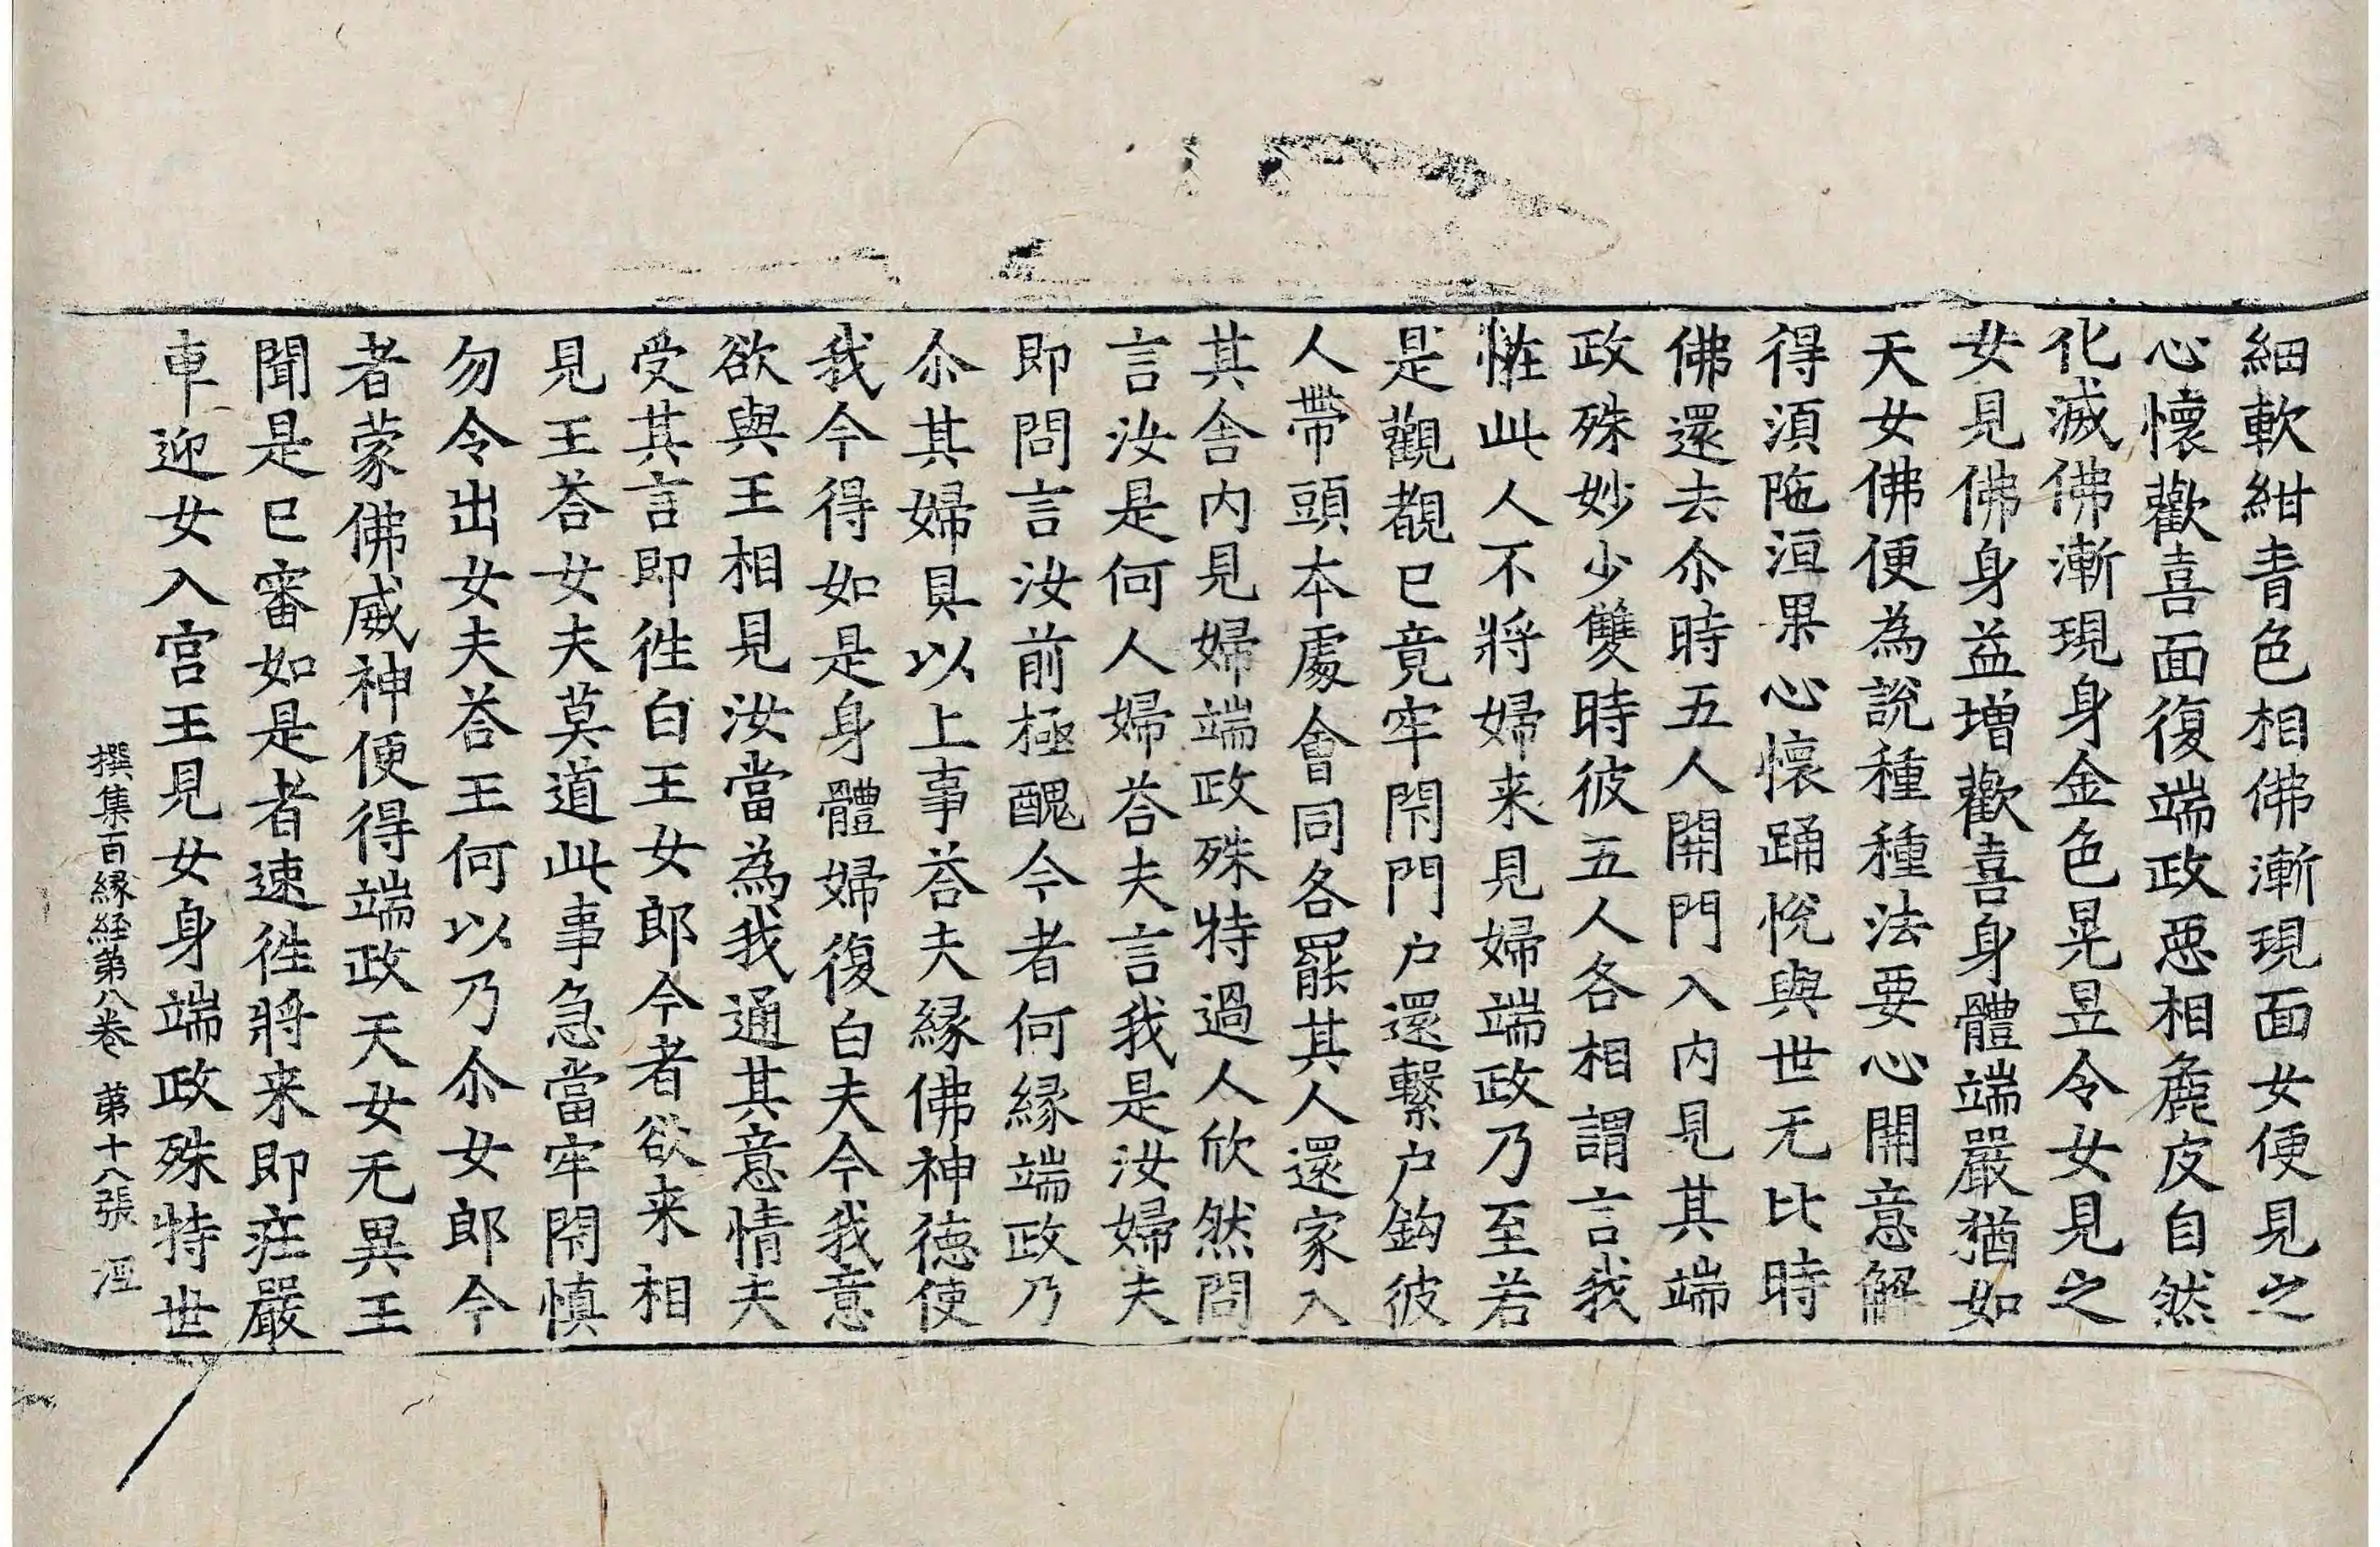 細軟紺青色相佛漸現面女便見之
心懷歡喜面復端政惡相麁皮自然
化滅佛漸現身金色晃昱令女見之
女見佛身益增歡喜身體端嚴猶如
天女佛便為說種種法要心開意解
得湏陁洹果心懷踊悅與世无比時
佛還去尒時五人開門入內見其端
政殊妙少雙時彼五人各相謂言我
恠此人不將婦来見婦端政乃至若
是觀覩已竟牢閇門户還繫户鈎彼
人帶頭本處會同各罷其人還家入
其舍內見婦端政殊特過人欣然問
言汝是何人婦荅夫言我是汝婦夫
即問言汝前極醜今者何緣端政乃
尒其婦具以上事荅夫緣佛神德使
我今得如是身體婦復白夫今我意
欲與王相見汝當為我通其意情夫
受其言即徃白王女郎今者欲来相
見王荅女夫莫道此事急當牢閇慎
勿令出女夫荅王何以乃尒女郎今
者蒙佛威神便得端政天女无異王
聞是已審如是者速徃將来即疰嚴
車迎女入宮王見女身端政殊特世
撰集百緣経第八卷 第十八張 涇